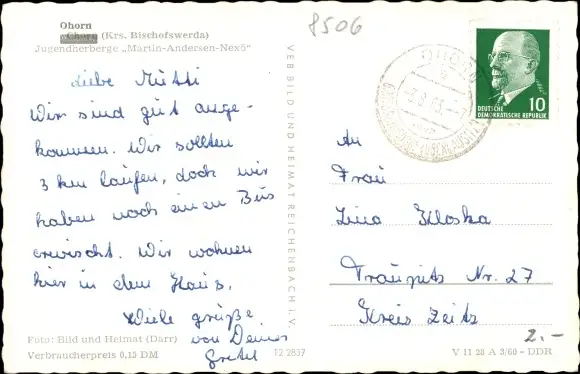 Ohorn
(Krs. Bischofswerda)
Jugendherberge „Martin-Andersen-Nexö“
8506
Liebe Mutti
Wir sind gut ange-
kommen. Wir sollten
3 km laufen, doch wir
haben noch einen Bus
erwischt. Wir wohnen
hier in dem Haus.
Viele grüße
von Deiner
Gretel
Foto: Bild und Heimat (Darr)
Verbraucherpreis 0,15 DM
12 2837
VEB BILD UND HEIMAT REICHENBACH I. V.
OHORN
DEUTSCHE
DEMOKRATISCHE REPUBLIK
10
An
Frau
Lina Kloska
Traupitz Nr. 27
Kreis Zeitz
2.-
V 11 28 A 3/60 - DDR